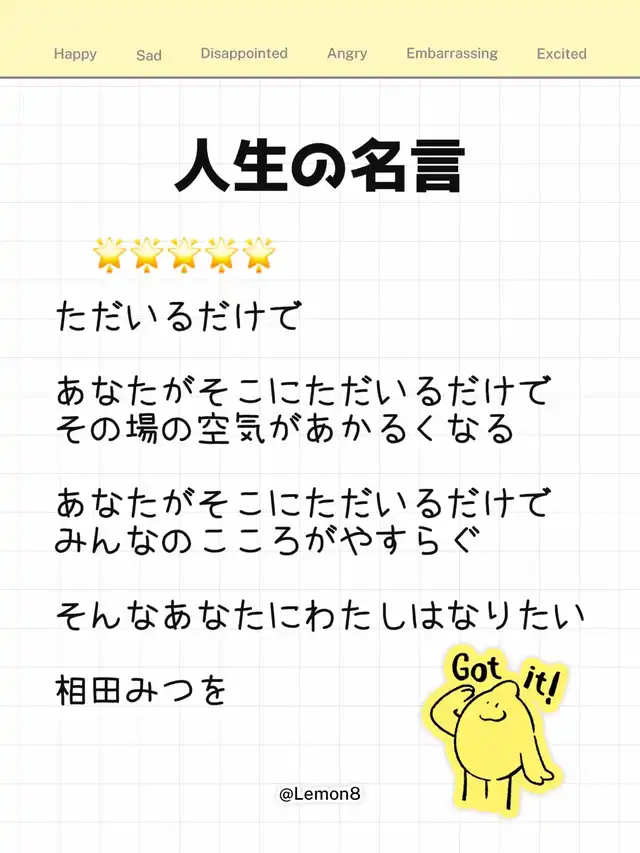 Happy Sad Disappointed Angry Embarrassing Excited
人生の名言
🌟🌟🌟🌟🌟
ただいるだけで
あなたがそこにただいるだけで
その場の空気があかるくなる
あなたがそこにただいるだけで
みんなのこころがやすらぐ
そんなあなたにわたしはなりたい
相田みつを
Got it!
@Lemon8